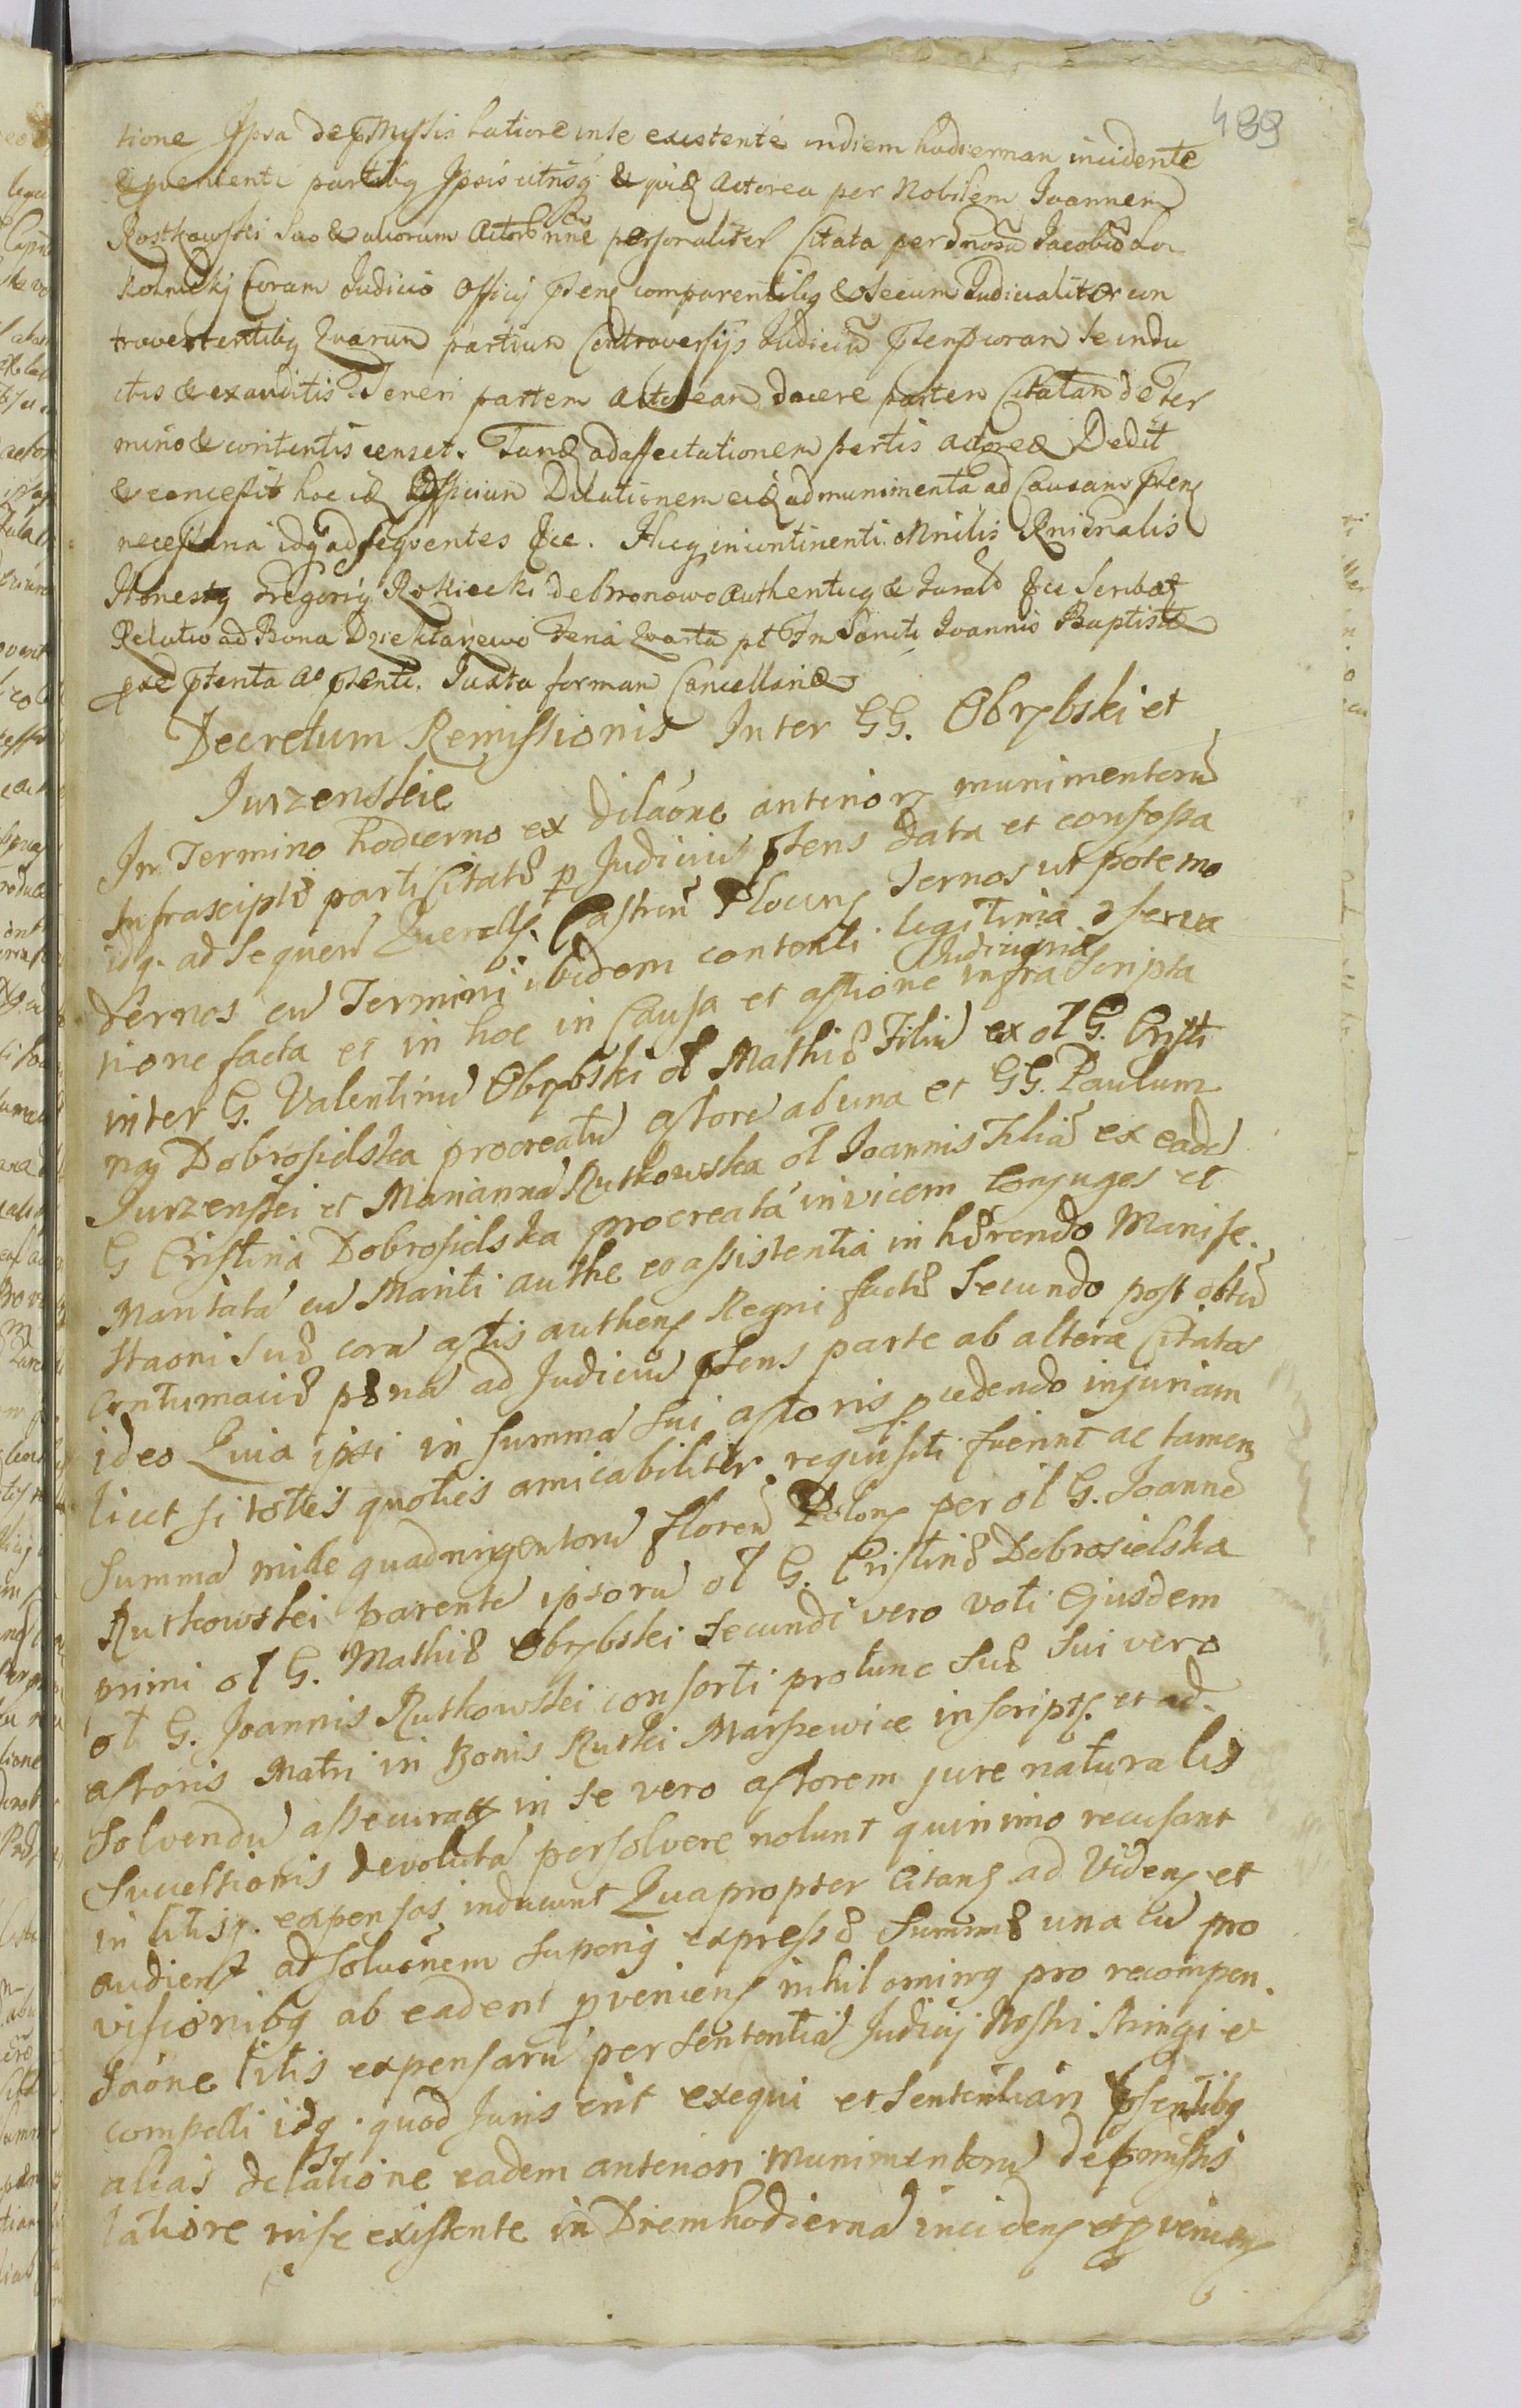 489
tione Ipsa de pmissis latiore inse existente indiem hodiernam incidente
& pvenienti partibq Ipsis utrisq & quidē Actorea per Nobilem Ioannem
Rostkowski Suo & aliorum Actorū nōe personaliter Citata per Gnosū Iacobū
Coram Iudicio Officij pten comparentibq & secum Iudicialiter con
trovertentibq Quarum partium Controversijs Iudiciū ptens coram se indu
ctis & exauditis. Teneri partem Actoream docere partem Citatam de Ter
mino & contentis censet. Tandē ad affectationem partis Actoreæ Dedit
& concessit hoc idē Officium Dilationem eidē ad munimenta ad Causam pten
necessaria idq ad sequentes &ce. Hucq incontinenti Mnilis Rnidnalis
Honestq Gregoriq Rostkecki de Bronowo Authenticq & Iuratq &ce Scribæq
Relatio ad Bona Dziektarzewo Feria Quarta pt Fm Sancti Ioannis Baptistæ
pxe ptenta Ao ptenti. Iuxta formam Cancellariæ
Decretum Remissionis Inter GG. Obrębski et
Iurzenskie
In Termino hodierno ex dilaōne anteriorz munimentorū
Infrascriptæ parti Citatæ p Iudiciū ptens data et consessa
idq. ad sequen Querell. Castren Plocen Ternos ut pote mo
dernos cū Termini ibidem contenti legitima pserva
Iudiciaria
tione facta et in hoc in Causa et actione infra Scripta
inter G. Valentinū Obrębski ol Mathiæ Filiū ex ol G. Cristi
na Dobrosielska procreatū actore ab una et GG. Paulum
Iurzenski et Marianna Rutkowska ol Ioannis Filiā ex eadē
G Cristina Dobrosielska procreatā invicem Conjuges et
Maritata cū Mariti authe eo assistentia in hærendo Manife.
staoni suæ cora actis authen Regni factæ Secundo post obtū
contumaciæ pæna ad Iudiciū ptens parte ab altera Citatas
ideo Quia ipsi in summa sui actoris pcedendo injuriam
licet si toties quoties amicabiliter requisiti fuerint ac tamen
Summa mille quadringentorū floren Polon per ol G. Joanne
Rutkowski parente ipsorū ol G. Cristinæ Dobrosielska
primi ol G. Mathiæ Obrębski Secundi vero voti Ejusdem
ol G. Joannis Rutkowski consorti protunc Suæ Sui vero
actoris Matri in Bonis Rutki Marszewice inscripts. et ad
solvendū assecurata in se vero actorem jure naturalis
Successionis devolutā persolvere nolunt quinimo recusant
in litisq. expensas inducunt Quapropter Citans ad Videns et
audiens ad solutōnem superiq expressæ Summæ una cū pro
visionibq ab eadem pveniens nihil ominq pro recompen.
saōne litis expensarū per Sententiā Judicij Nostri stringi et
compelli idq. quod Juris erit exequi et Sententiam ptentibq
alias delatione eadem anteriori Munimentorū de pmissis
latiore inse existente in Diem hodierna inciden et pvenien